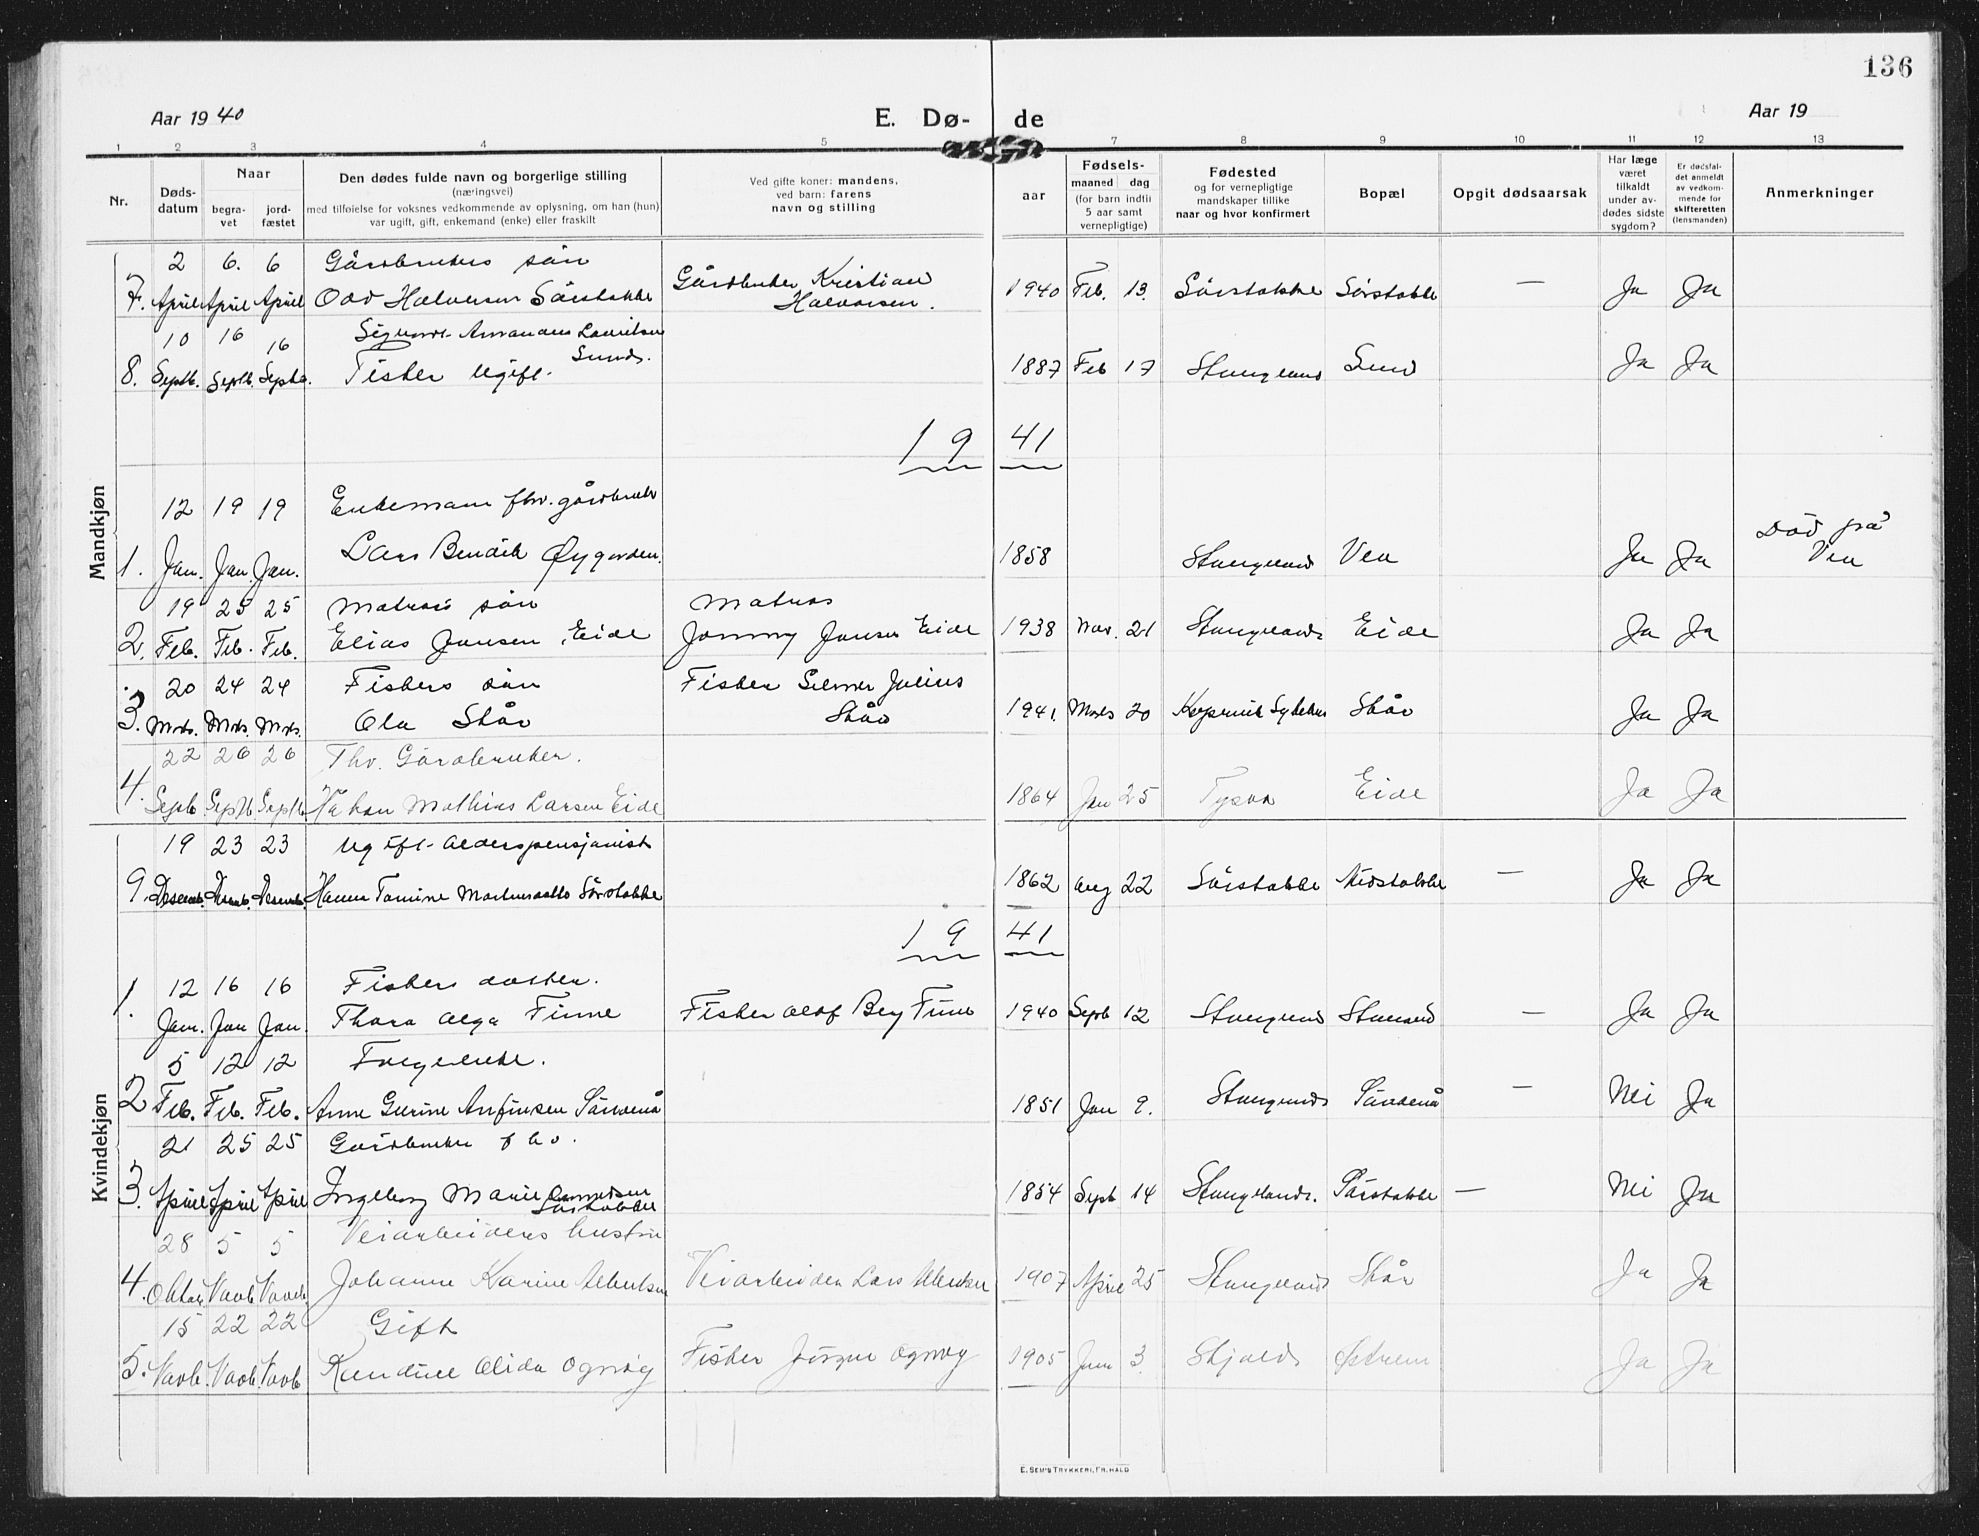 136
Aar 1940
E. Dø- de
Aar 19
1 2 3 4 5 7 8 9 10 11 12 13
Nr.
Døds-
datum
Naar
begra-
vet
jord-
fæstet
Den dødes fulde navn og borgerlige stilling
(næringsvei)
med tilføielse for voksnes vedkommende av oplysning, om han (hun)
var ugift, gift, enkemand (enke) eller fraskilt
Ved gifte koner: mandens,
ved barn: farens
navn og stilling
aar
Fødsels-
maaned dag
(for barn indtil
5 aar samt
vernepligtige)
Fødested
og for vernepligtige
mandskaper tillike
naar og hvor konfirmert
Bopæl
Opgit dødsaarsak
Har læge
været
tilkaldt
under av-
dødes sidste
sygdom?
Er dødsfal-
det anmeldt
av vedkom-
mende for
skifteretten
(lensmanden)
Anmerkninger
Mandkjøn
2 6. 6 Gårdbrukers søn Gårdbruker Kristian
7. April April April Odd Halvorsen Sörstokke Halvorsen. 1940 Feb. 13. Sörstokke Sörstokke — Ja Ja
10 16 16 Sigvart Amandus Lauritsen
Sund.
8. Septb. Septb. Septb. Fisker Ugift. 1887 Feb 17 Stangeland Sund Ja Ja
19 41
12 19 19 Enkemann fhv. gårdbruker
Død på
1. Jan. Jan. Jan. Lars Bendik Øygarden. 1858 Stangeland Vea Ja Ja Vea
19 25 25 Matros søn Matros
2. Feb. Feb. Feb. Elias Jensen Eide Jonny Jensen Eide 1938 Nov. 21 Stangelands Eide Ja Ja
20 24 24 Fiskers søn Fisker Selmer Julius
3. Mrds. Mrds. Mrds. Ola Skår Skår 1941. Mrds 20 Kopervik Sykehus Skår Ja Ja
22 26 26 Fhv. Gårdbruker.
4. Septb. Septb. Septb. Håkon Mathias Larsen Eide 1864 Jan 25 Tysvær Eide Ja Ja
19 23 23 Ugift alderspensjonist
9. Desemb. Desemb. Desemb. Hanna Tomine Mortensdatter Sörstokke 1862 Aug 22 Sörstokke Midstokke — Ja Ja
19 41
Kvindekjøn
12 16 16 Fiskers datter.
1. Jan. Jan Jan. Thora Olga Finne Fisker Olaf Berg Finne 1940 Septb 12 Stangeland — Ja Ja
5 12 12 Fargeenke.
2 Feb. Feb. Feb. Anne Gurine Anfinsen Sandenå 1851 Jan 9. Stangelands Sandenå — Nei Ja
21 25 25 Gårdbruker fhv.
3. April April April Ingeborg Marie
Sörstokke 1854 Septb 14 Stangelands. Sörstokke — Nei Ja
28 5 5 Veiarbeiders hustru
4. Oktob. Novb. Novb. Johanne Karine Albertsen Veiarbeider Lars Albertsen 1907 April 25 Stangelands Skår Ja Ja
15 22 22 Gift
5. Novb. Novb. Novb. Olida Ognøy Fisker Jørgen Ognøy 1905 Juni 3 Skjolds Østrem Ja Ja
E. SEM'S TRYKKERI, FR.HALD